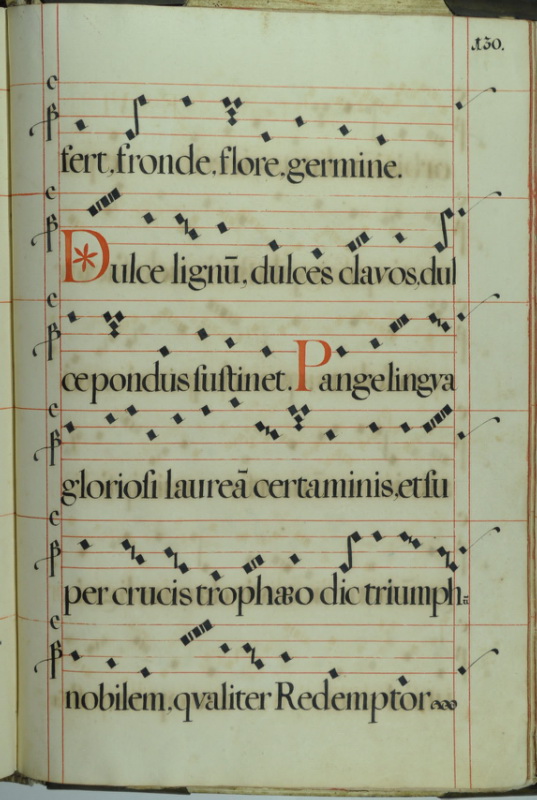 130.
fert, fronde, flore, germine.
Dulce lignū, dulces clavos, dul
ce pondus ſuſtinet. Pange lingva
glorioſi laureã certaminis, et ſu
per crucis trophæo dic triumph
nobilem, qvaliter Redemptor